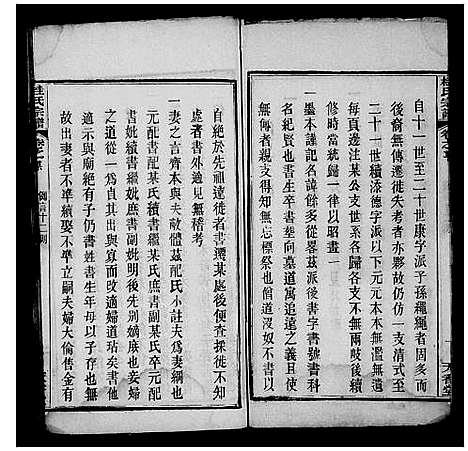 自十一世至二十世康字派子孫繩繩者固多而
後裔無傳遷徙失考者亦夥故仍仿一支清式至
二十一世積漆德字派以下元元本本無濫無遺
故每邊注某公支世系各歸一脈而無兩歧後嗣
修時當統歸一律以昭畫一
一墨本謹記名諱餘多從畧茲派後書字書號書科
一紀賢也書生卒書葬向墓道寓追遠之義且使
人人知所無忘標祭也僧道者沒奴不書以
自絕於先祖遠徙者書遷某處後便查採徙不知
處者書外遊見無稽考
一妻之言齊本與夫敵體茲配氏小註夫爲妻綱也
元配書配某氏續書繼某氏庶書副某氏卒元配
書妣續書繼妣庶書副妣所以先別嫡庶也妾婦
之道從一爲貞其出與窅而改適婦道玷矣書他
適示與廟絕有子仍書姓書生年毋以子存也
故出喪者不準續娶不準立嗣夫婦大倫惜金有
杜氏宗譜
卷之首